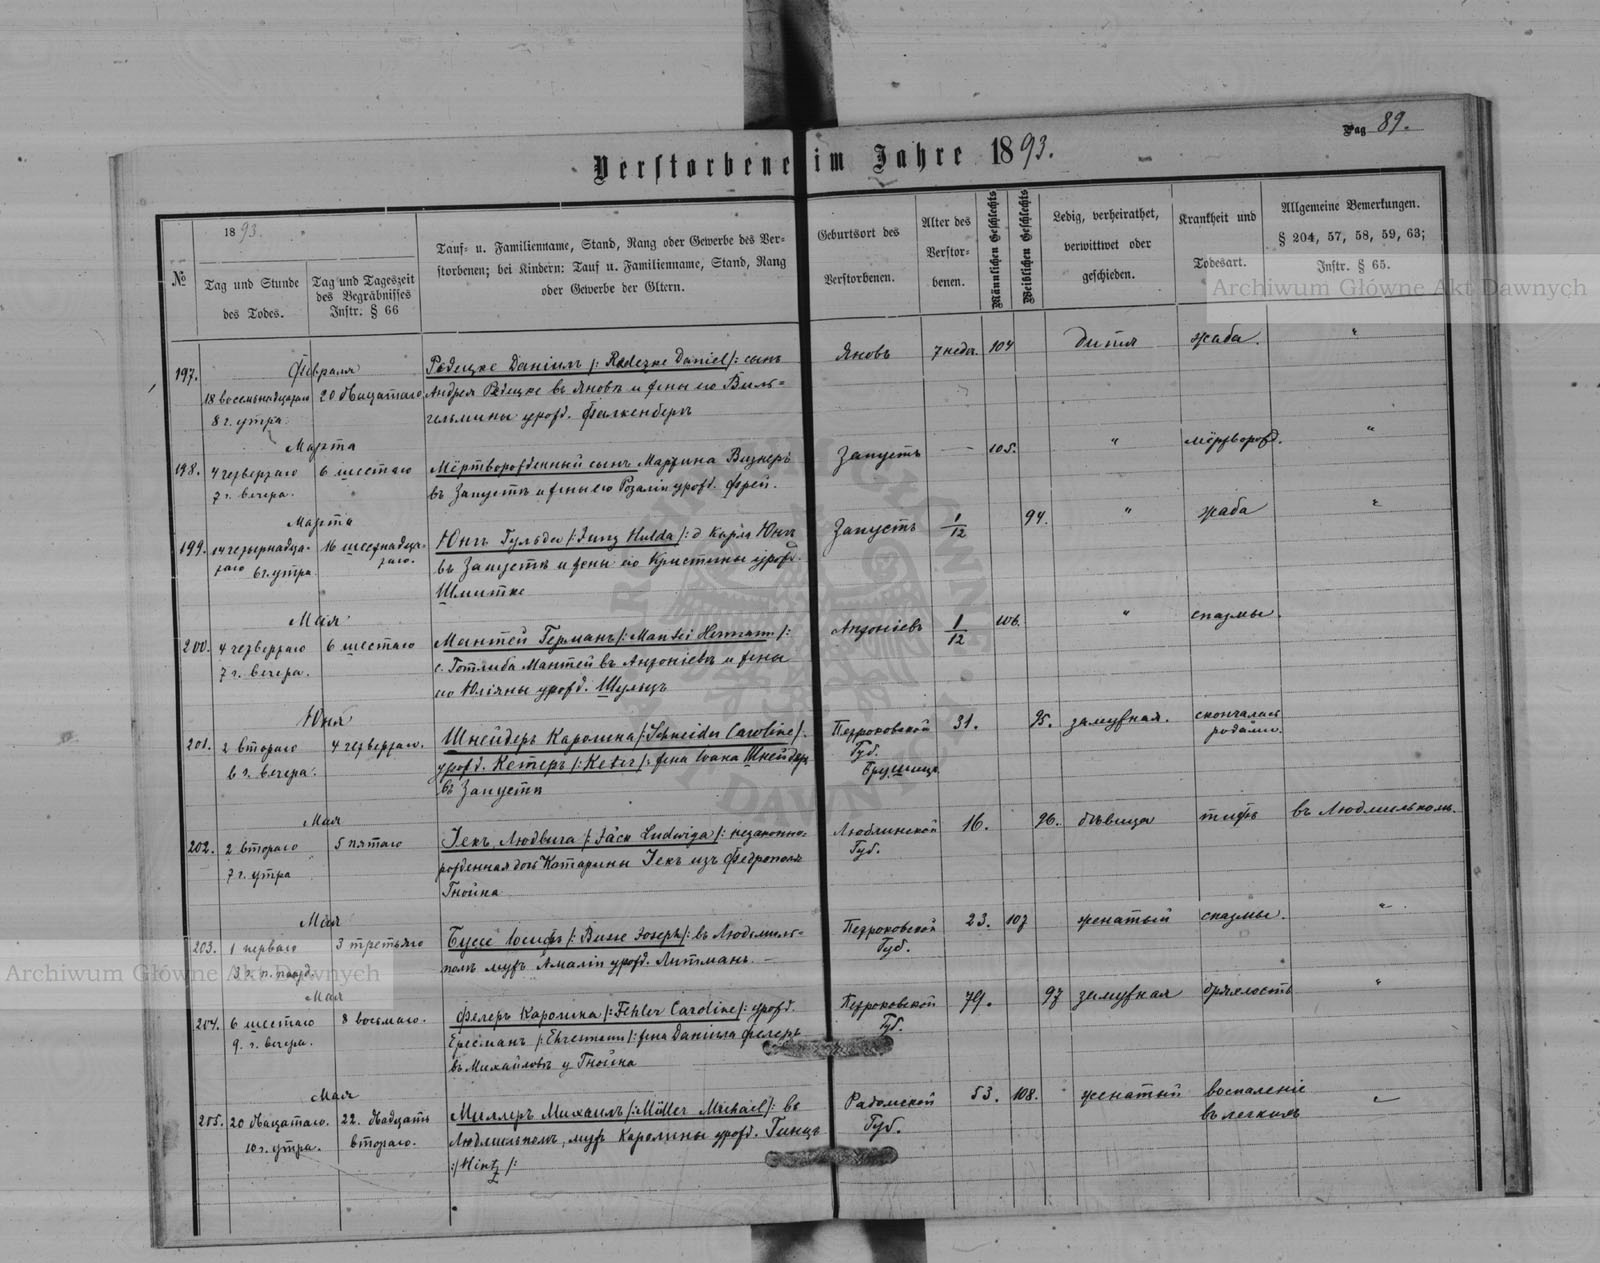 Pag 89.
Verstorbene im Jahre 1893.
№
1893.
Tag und Stunde
des Todes.
Tag und Tageszeit
des Begräbnisses
Instr. § 66
Tauf- u. Familienname, Stand, Rang oder Gewerbe des Ver-
storbenen; bei Kindern: Tauf u. Familienname, Stand, Rang
oder Gewerbe der Eltern.
Geburtsort des
Verstorbenen.
Alter des
Verstor-
benen.
Männlichen Geschlechts
Weiblichen Geschlechts
Ledig, verheirathet,
verwittwet oder
geschieden.
Krankheit und
Todesart.
Allgemeine Bemerkungen.
§ 204, 57, 58, 59, 63;
Instr. § 65.
Archiwum Główne Akt Dawnych
197.
Февраля
18 восемнадцатаго
8 г. утра.
20 двацатаго
Редецке Данiилъ /: Radezke Daniel :/ сынъ
Андрея Редецке въ Яновѣ и жены его Виль=
гельмины урожд. Фалкенберъ
Яновъ
7 недѣ.
104
дитя
жаба.
"
198.
Марта
4 четвертаго
7 г. вечера.
6 шестаго
Мёртворожденный сынъ Мартина Визнеръ
въ Запустѣ и жены его Розалiи урожд. Фрей.
Запустъ
—
105.
"
мёртворожд.
"
199.
Марта
14 четырнадца-
таго 6 г. утра.
16 шестнадца-
таго.
Юнгъ Гульда /: Jung Hulda /: д. Карла Юнгъ
въ Запустѣ и жены его Кристины урожд.
Шмитке
Запустъ
1/12
94.
"
жаба
"
200.
Мая
4 четвертаго
7 г. вечера.
6 шестаго
Мантей Германъ /: Mantei Hermann /:
с. Готлиба Мантей въ Антонiевѣ и жены
его Юлiяны урожд. Шульцъ
Антонiевъ
1/12
106.
"
спазмы.
201.
Юня
2 втораго
6 г. вечера.
4 четвертаго.
Шнейдеръ Каролина /: Schneider Caroline /:
урожд. Кетеръ /: Keter /: жена Ivана Шнейдеръ
въ Запустѣ
Петроковской
Губ.
31.
95.
замужная.
скончалась
родами.
202.
Мая
2 втораго
7 г. утра
5 пятаго
Iекъ, Людвига /: Jäck Ludwiga /: незаконно=
рожденная дочь Катарины Iекъ изъ Федрополя
Гнойна
Люблинской
Губ.
16.
96.
дѣвица
тифъ
въ Людмильполь.
203.
Мая
1 перваго
3 г. п. полуд.
3 третьяго
Буссе Iосифъ /: Busse Joseph /: въ Людмиль-
полѣ мужъ Амалiи урожд. Литманъ. —
Петроковской
Губ.
23.
107
женатый
спазмы.
"
Archiwum Główne Akt Dawnych
204.
Мая
6 шестаго
9. г. вечера.
8 восьмаго.
Фелеръ Каролина /: Fehler Caroline /: урожд.
Ересманъ /: Ehresmann /: жена Данiила Фелеръ
въ Михайловѣ у Гнойна
Петроковской
Губ.
79.
97
замужная
дряхлость
"
205.
Мая
20 двацатаго.
10 г. утра.
22. двадцать
втораго.
Миллеръ Михаилъ /: Müller Michael /: въ
Людмильполѣ, мужъ Каролины урожд. Гинцъ
:/ Hintz /:
Радомской
Губ.
53.
108.
женатый
воспаленiе
въ легкихъ
"